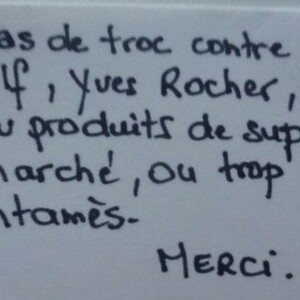 as de troc contre
lf, Yves Rocher,
u produits de sup
marché, ou trop
ntamès.
MERCi.